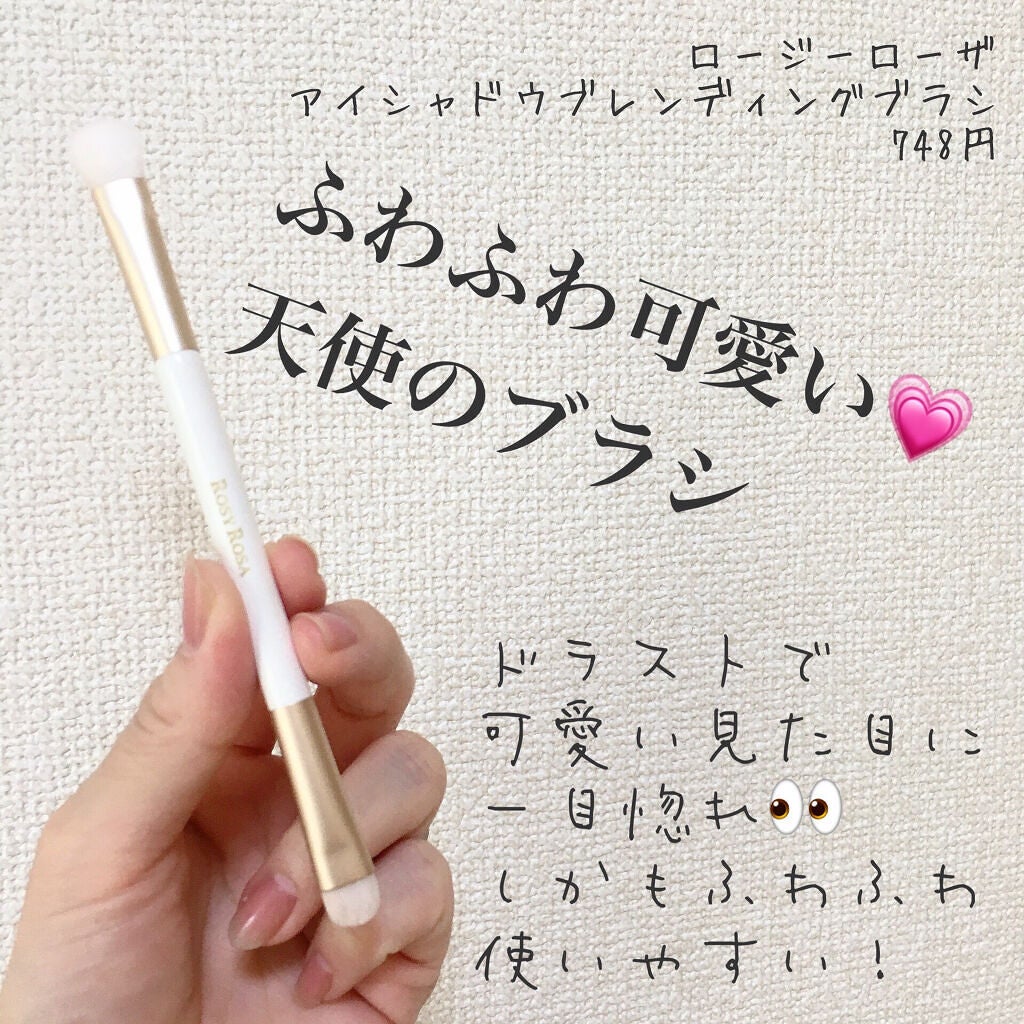 ロージーローザ
アイシャドウブレンディングブラシ
748円
ふわふわ可愛い
天使のブラシ
ROSY ROSA
ドラストで
可愛い見た目に
一目惚れ👀
しかもふわふわ
使いやすい!